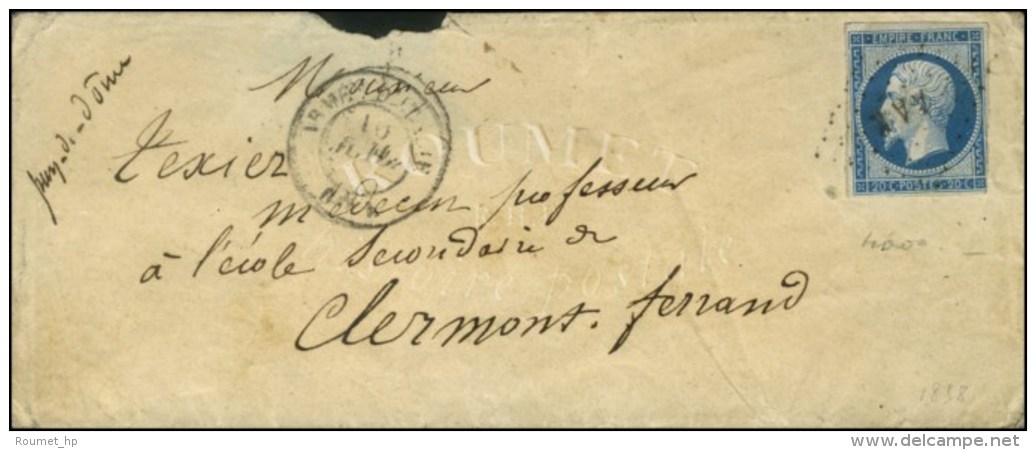 puy-de-dôme
Monsieur
Texier
médecin professeur
à l'école Secondaire de
Clermont. ferrand
EMPIRE FRANC
20 C POSTES 20 C
ROUMET
Histoire postale
1858
Roumet_hp
www.delcampe.net